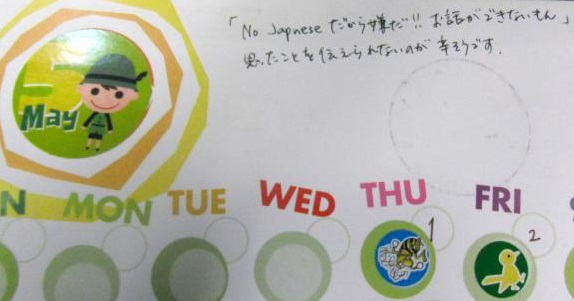 「No Japnese だから嫌だ!! お話ができないもん」
思ったことを伝えられないのが 辛そうです.
May
N MON TUE WED THU FRI
1 2